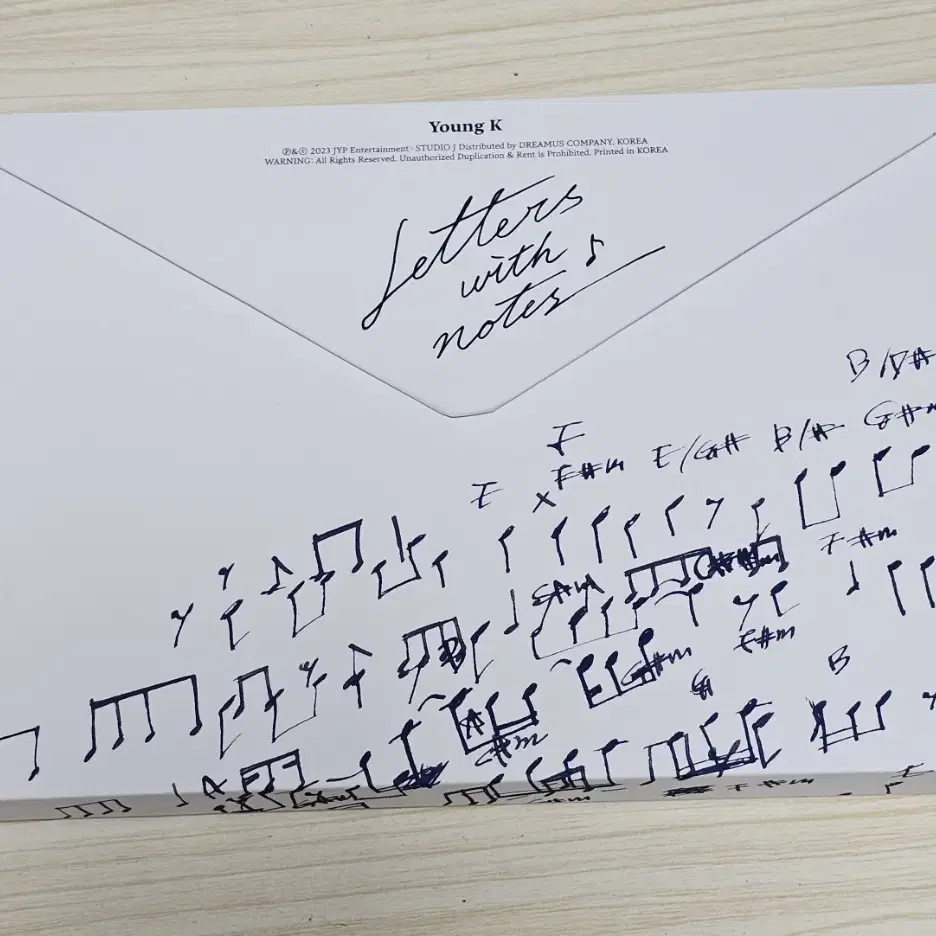 Young K
℗&© 2023 JYP Entertainment · STUDIO J Distributed by DREAMUS COMPANY, KOREA
WARNING: All Rights Reserved. Unauthorized Duplication & Rent is Prohibited. Printed in KOREA
Letters
with
notes
B/D#
F
E F#m E/G# B/# G#m
F#m
C#m
G#m E#m
B
A
C#m
F#m